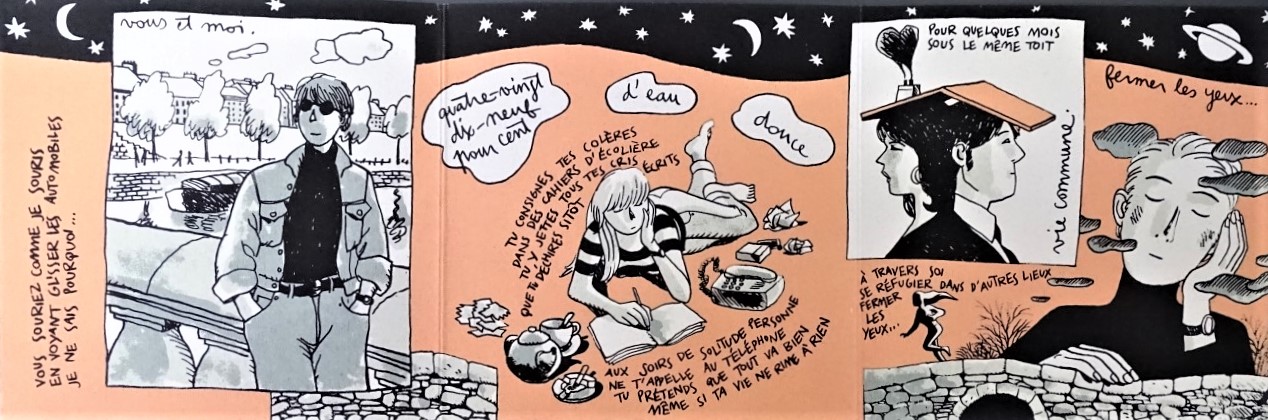 vous et moi.
VOUS SOURIEZ COMME JE SOURIS
EN VOYANT GLISSER LES AUTOMOBILES
JE NE SAIS POURQUOI...
quatre-vingt
dix-neuf
pour cent
d'eau
douce
TU CONSIGNES TES COLÈRES
DANS DES CAHIERS D'ÉCOLIÈRE
TU Y JETTES TOUS TES CRIS ÉCRITS
QUE TU DÉCHIRES SITÔT
AUX SOIRS DE SOLITUDE PERSONNE
NE T'APPELLE AU TÉLÉPHONE
TU PRÉTENDS QUE TOUT VA BIEN
MÊME SI TA VIE NE RIME À RIEN
POUR QUELQUES MOIS
SOUS LE MÊME TOIT
vie commune.
fermer les yeux...
À TRAVERS SOI
SE RÉFUGIER DANS D'AUTRES LIEUX
FERMER
LES
YEUX...